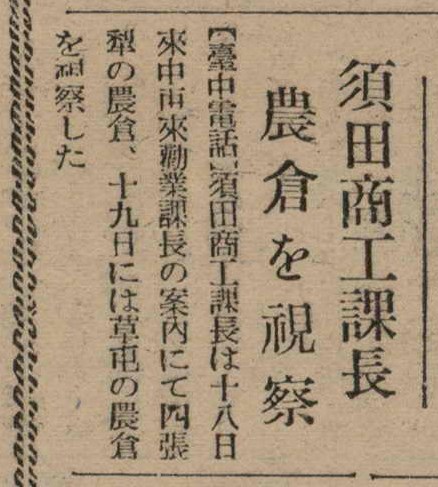 須田商工課長
農倉を視察
【臺中電話】須田商工課長は十八日
來中市來勸業課長の案內にて四張
犁の農倉、十九日には草屯の農倉
を視察した